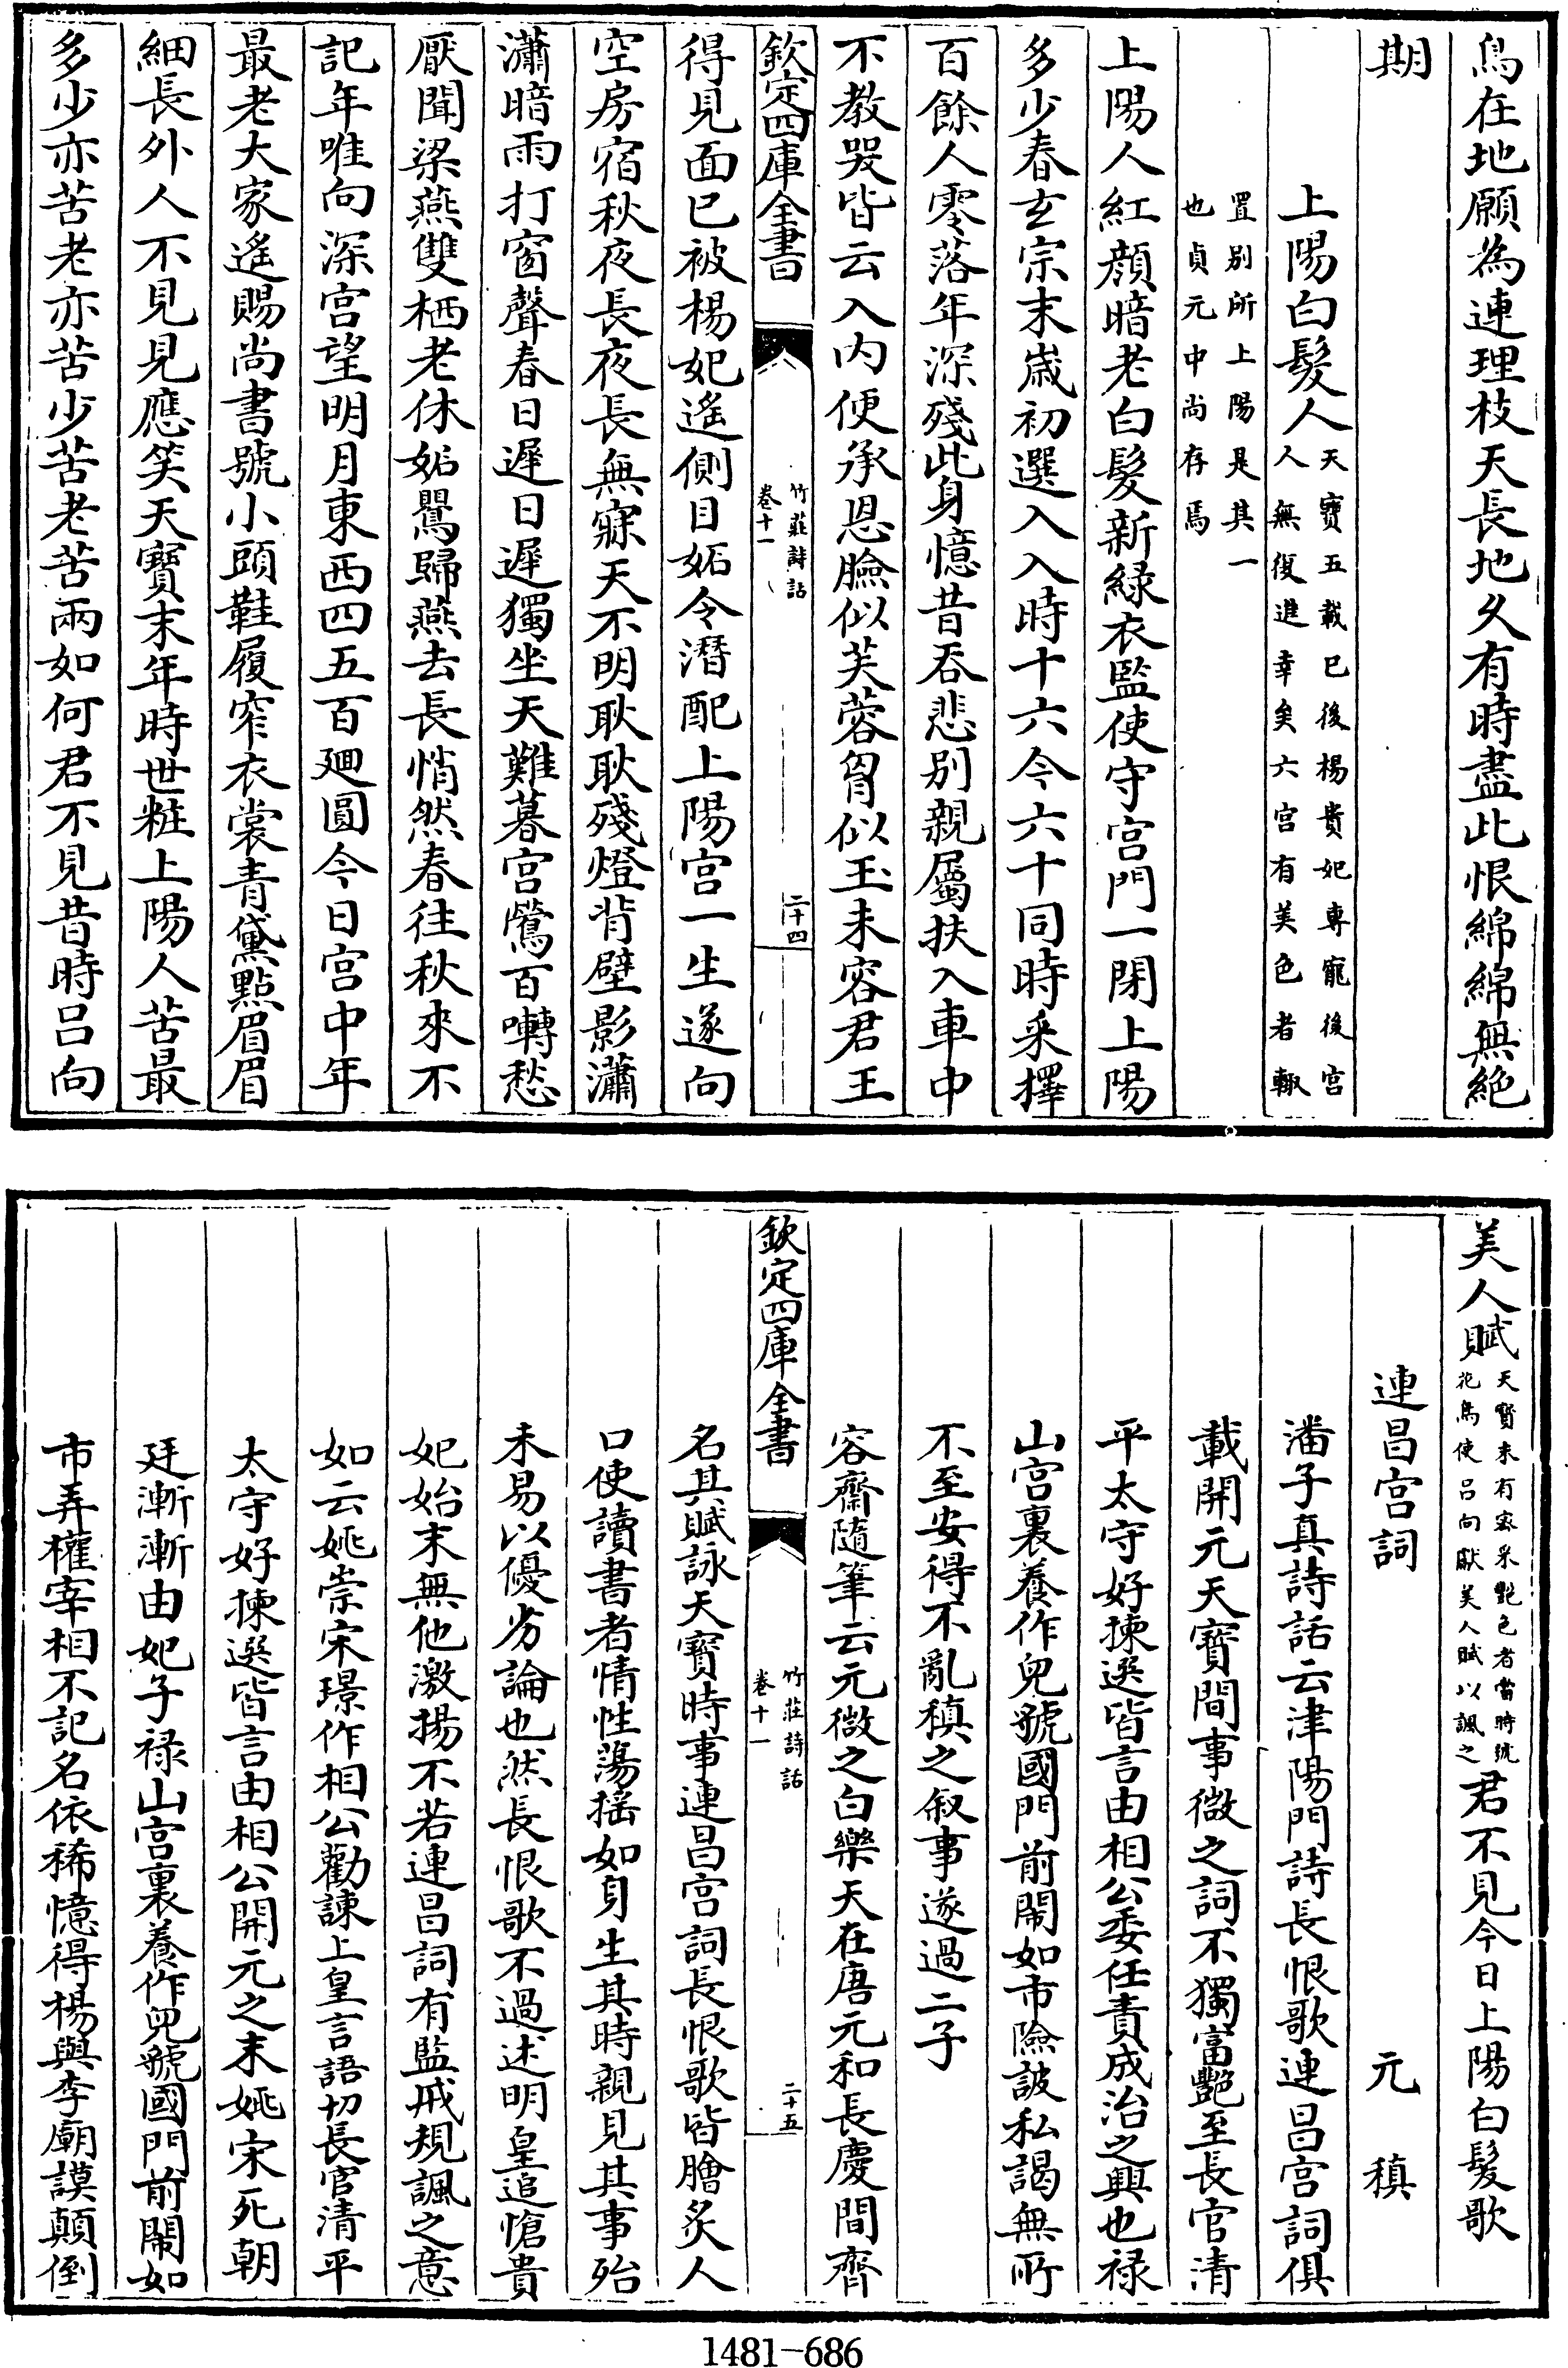 鳥在地願為連理枝天長地久有時盡此恨綿綿無絶
期
上陽白髮人天寶五載已後楊貴妃專寵後宮
人無復進幸矣六宫有美色者輙
置别所上陽是其一
也貞元中尚存焉
上陽人紅顔暗老白髮新緑衣監使守宫門一閉上陽
多少春玄宗末歲初選入入時十六今六十同時采擇
百餘人零落年深殘此身憶昔吞悲别親屬扶入車中
不教哭皆云入内便承恩臉似芙蓉胷似玉未容君王
欽定四庫全書
竹莊詩話
卷十一
二十四
得見面已被楊妃遙側目妬令潛配上陽宫一生遂向
空房宿秋夜長夜長無寐天不明耿耿殘燈背壁影瀟
瀟暗雨打窗聲春日遲日遲獨坐天難暮宫鶯百囀愁
厭聞梁燕雙栖老休妬鸎歸燕去長悄然春往秋來不
記年唯向深宫望明月東西四五百廻圓今日宫中年
最老大家遙賜尚書號小頭鞋履窄衣裳青黛點眉眉
細長外人不見見應笑天寳末年時世粧上陽人苦最
多少亦苦老亦苦少苦老苦兩如何君不見昔時吕向
美人賦天寶末有密采艷色者當時號
花鳥使吕向獻美人賦以諷之君不見今日上陽白髮歌
連昌宫詞 元稹
潘子真詩話云津陽門詩長恨歌連昌宫詞俱
載開元天寳間事微之詞不獨富艷至長官清
平太守好揀選皆言由相公委任責成治之興也禄
山宫裏養作兒虢國門前鬧如市險詖私謁無所
不至安得不亂稹之叙事遂過二子
容齋隨筆云元微之白樂天在唐元和長慶間齊
欽定四庫全書
竹莊詩話
卷十一
二十五
名其賦詠天寳時事連昌宫詞長恨歌皆膾炙人
口使讀書者情性蕩揺如身生其時親見其事殆
未易以優劣論也然長恨歌不過述明皇追愴貴
妃始末無他激揚不若連昌詞有監戒規諷之意
如云姚崇宋璟作相公勸諫上皇言語切長官清平
太守好揀選皆言由相公開元之末姚宋死朝
廷漸漸由妃子禄山宫裏養作兒虢國門前鬧如
市弄權宰相不記名依稀憶得楊與李廟謨顛倒
1481-686